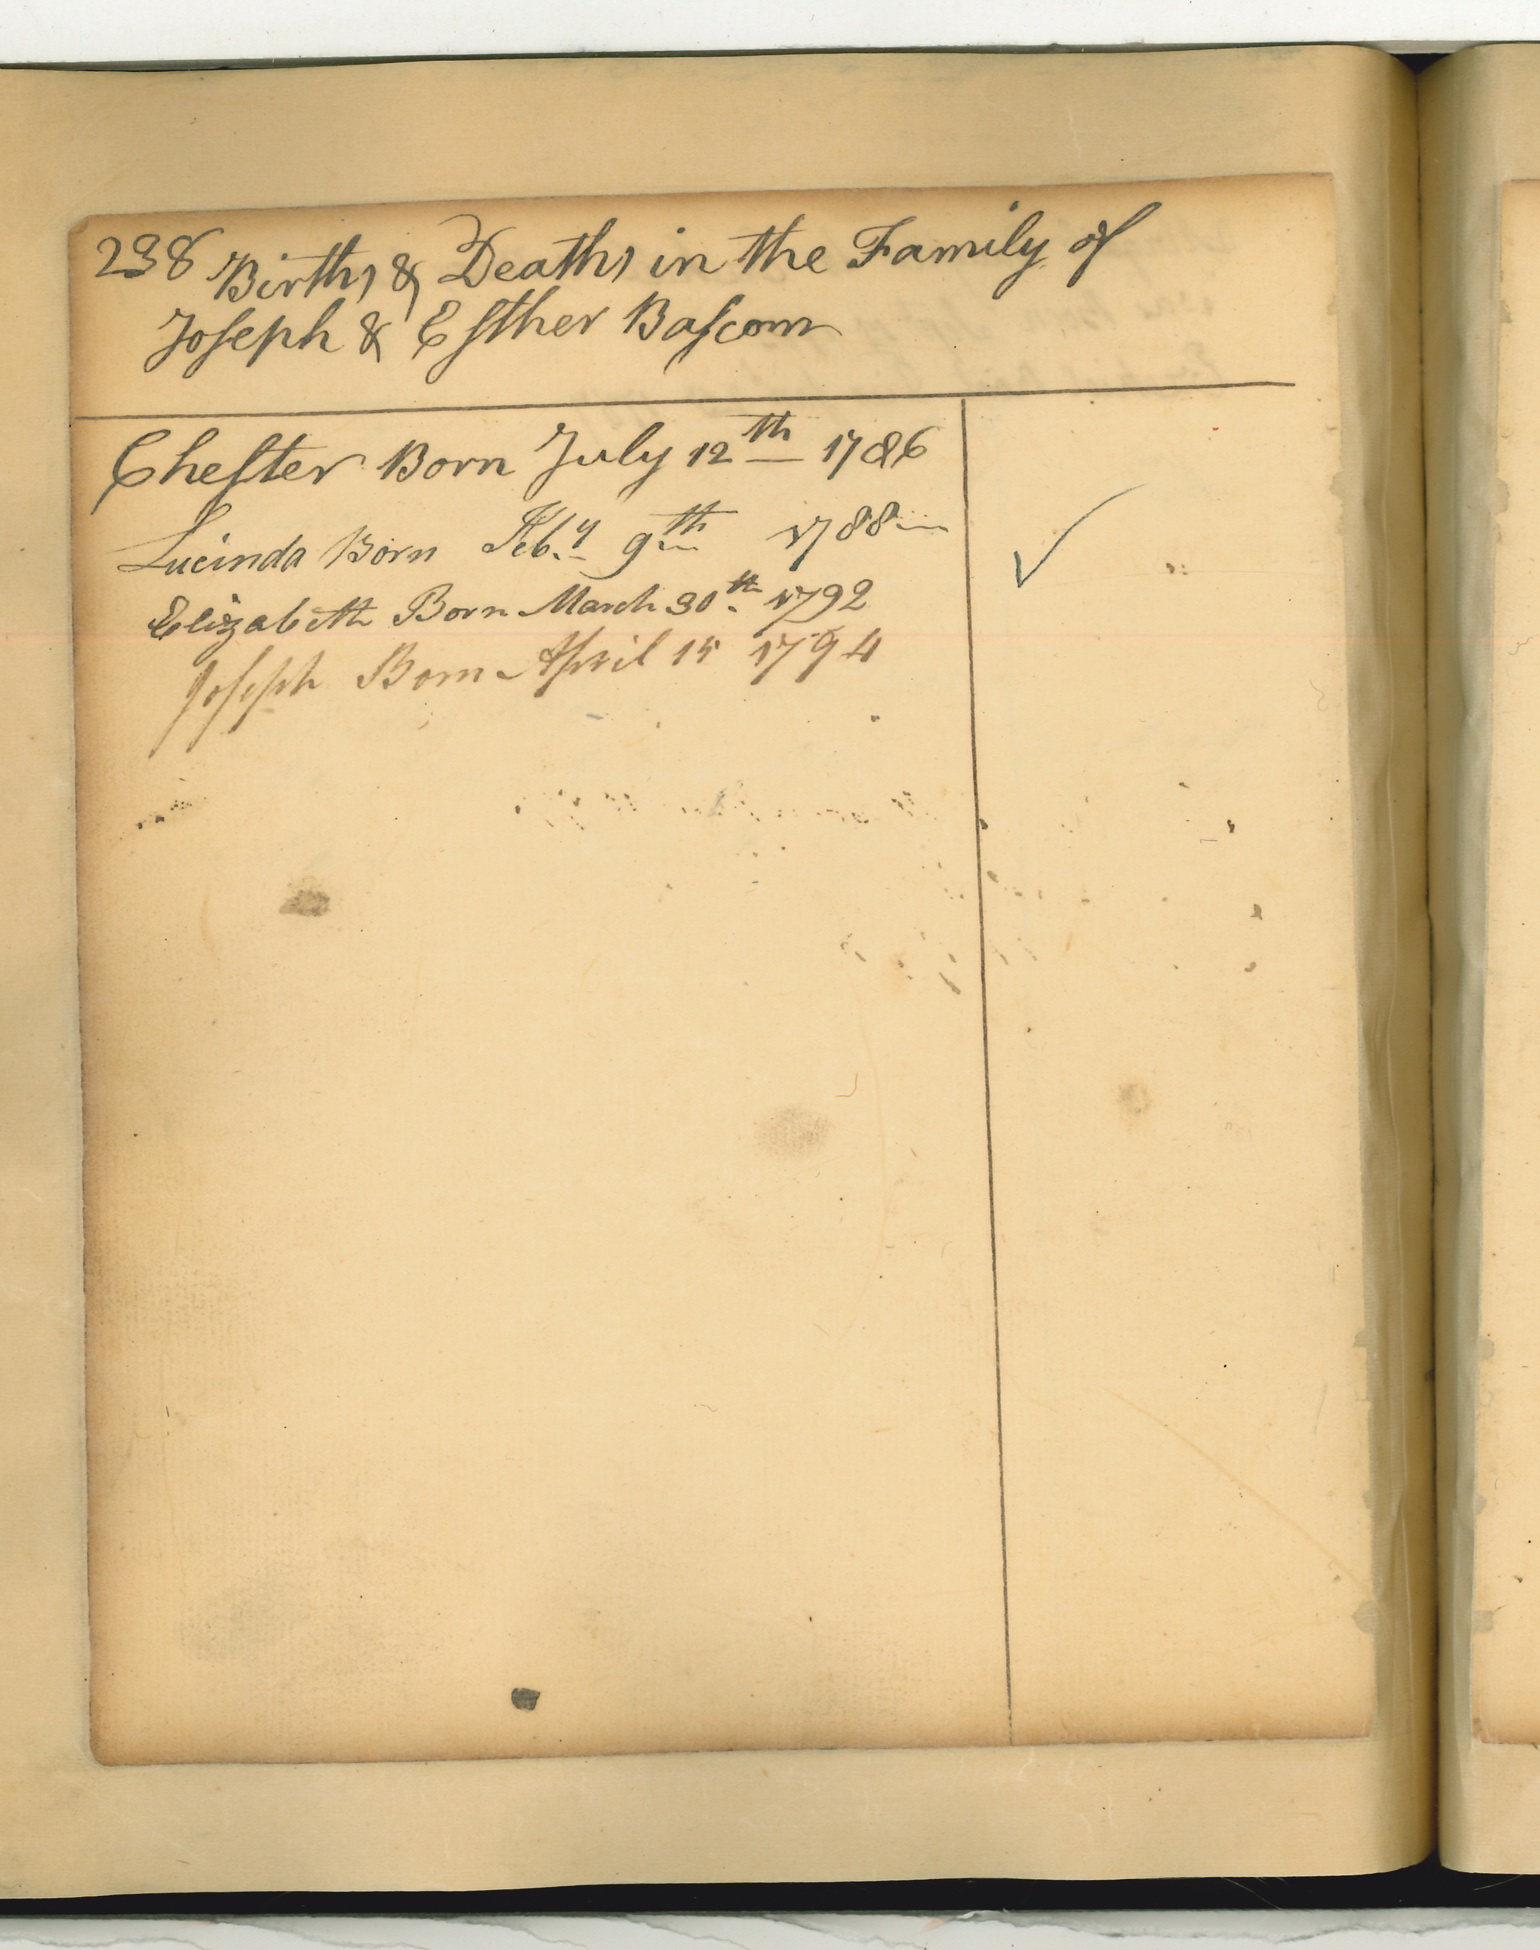 238 Births & Deaths in the Family of
Joseph & Esther Bascom
Chester Born July 12th 1786
Lucinda Born Feb.y 9th 1788
Elizabeth Born March 30th 1792
Joseph Born April 15 1794